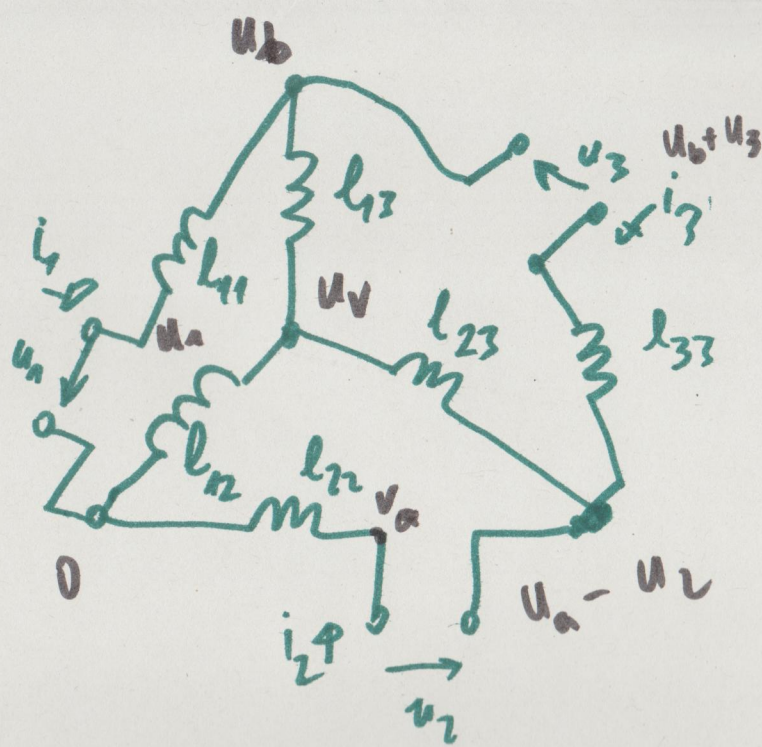 u_b
l_13
u_3
u_b + u_3
i_3
i_1
l_11
u_1
u_1
u_v
l_23
l_33
l_12
l_22
v_a
0
i_2
u_2
u_a - u_2